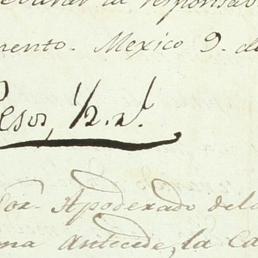 responsab
mento. Mexico 9. de
Pesos, 1/2. r.ˢ
Sor. Apoderado del
ma Antecede, la Ca